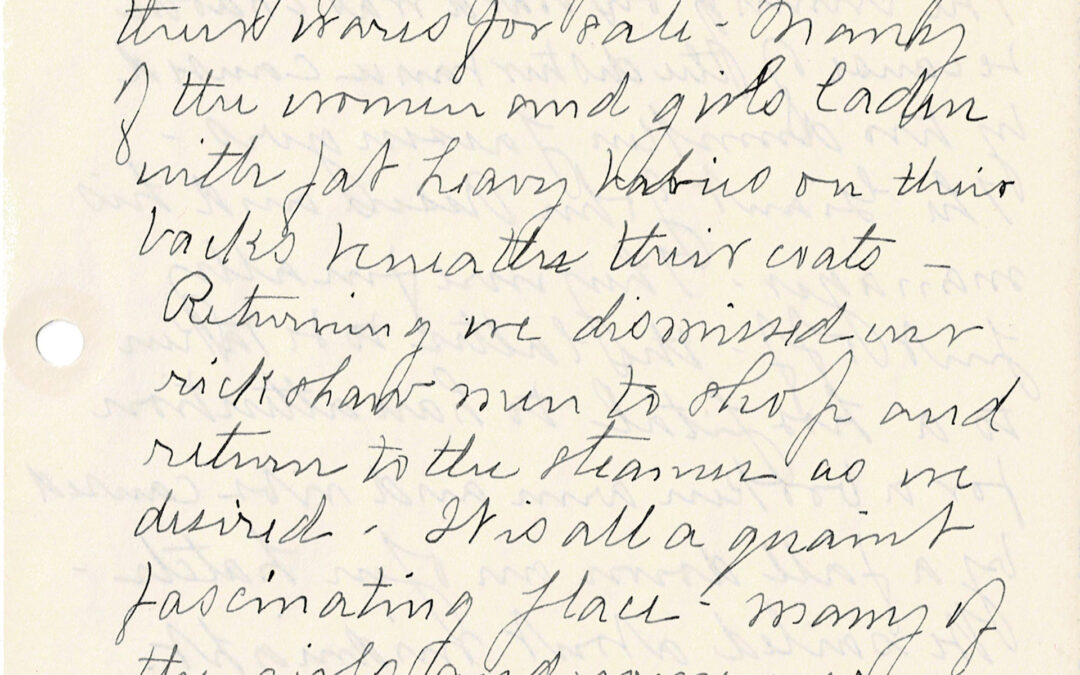 their wares for sale - Many
of the women and girls laden
with fat heavy babies on their
backs beneath their coats -
Returning we dismissed our
rickshaw men to shop and
return to the steamer as we
desired. It is all a quaint
fascinating place - many of
the girls and